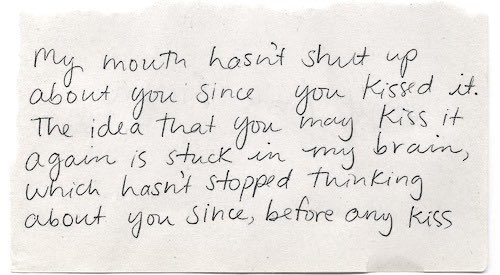 My mouth hasn't shut up
about you since you kissed it.
The idea that you may kiss it
again is stuck in my brain,
which hasn't stopped thinking
about you since, before any kiss